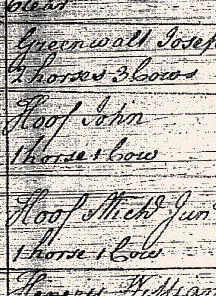 clear
Greenwalt Josep
2 horses 3 Cows
Hoof John
1 horse 1 Cow
Hoof Michl Junr
1 horse 1 Cow
Henery William